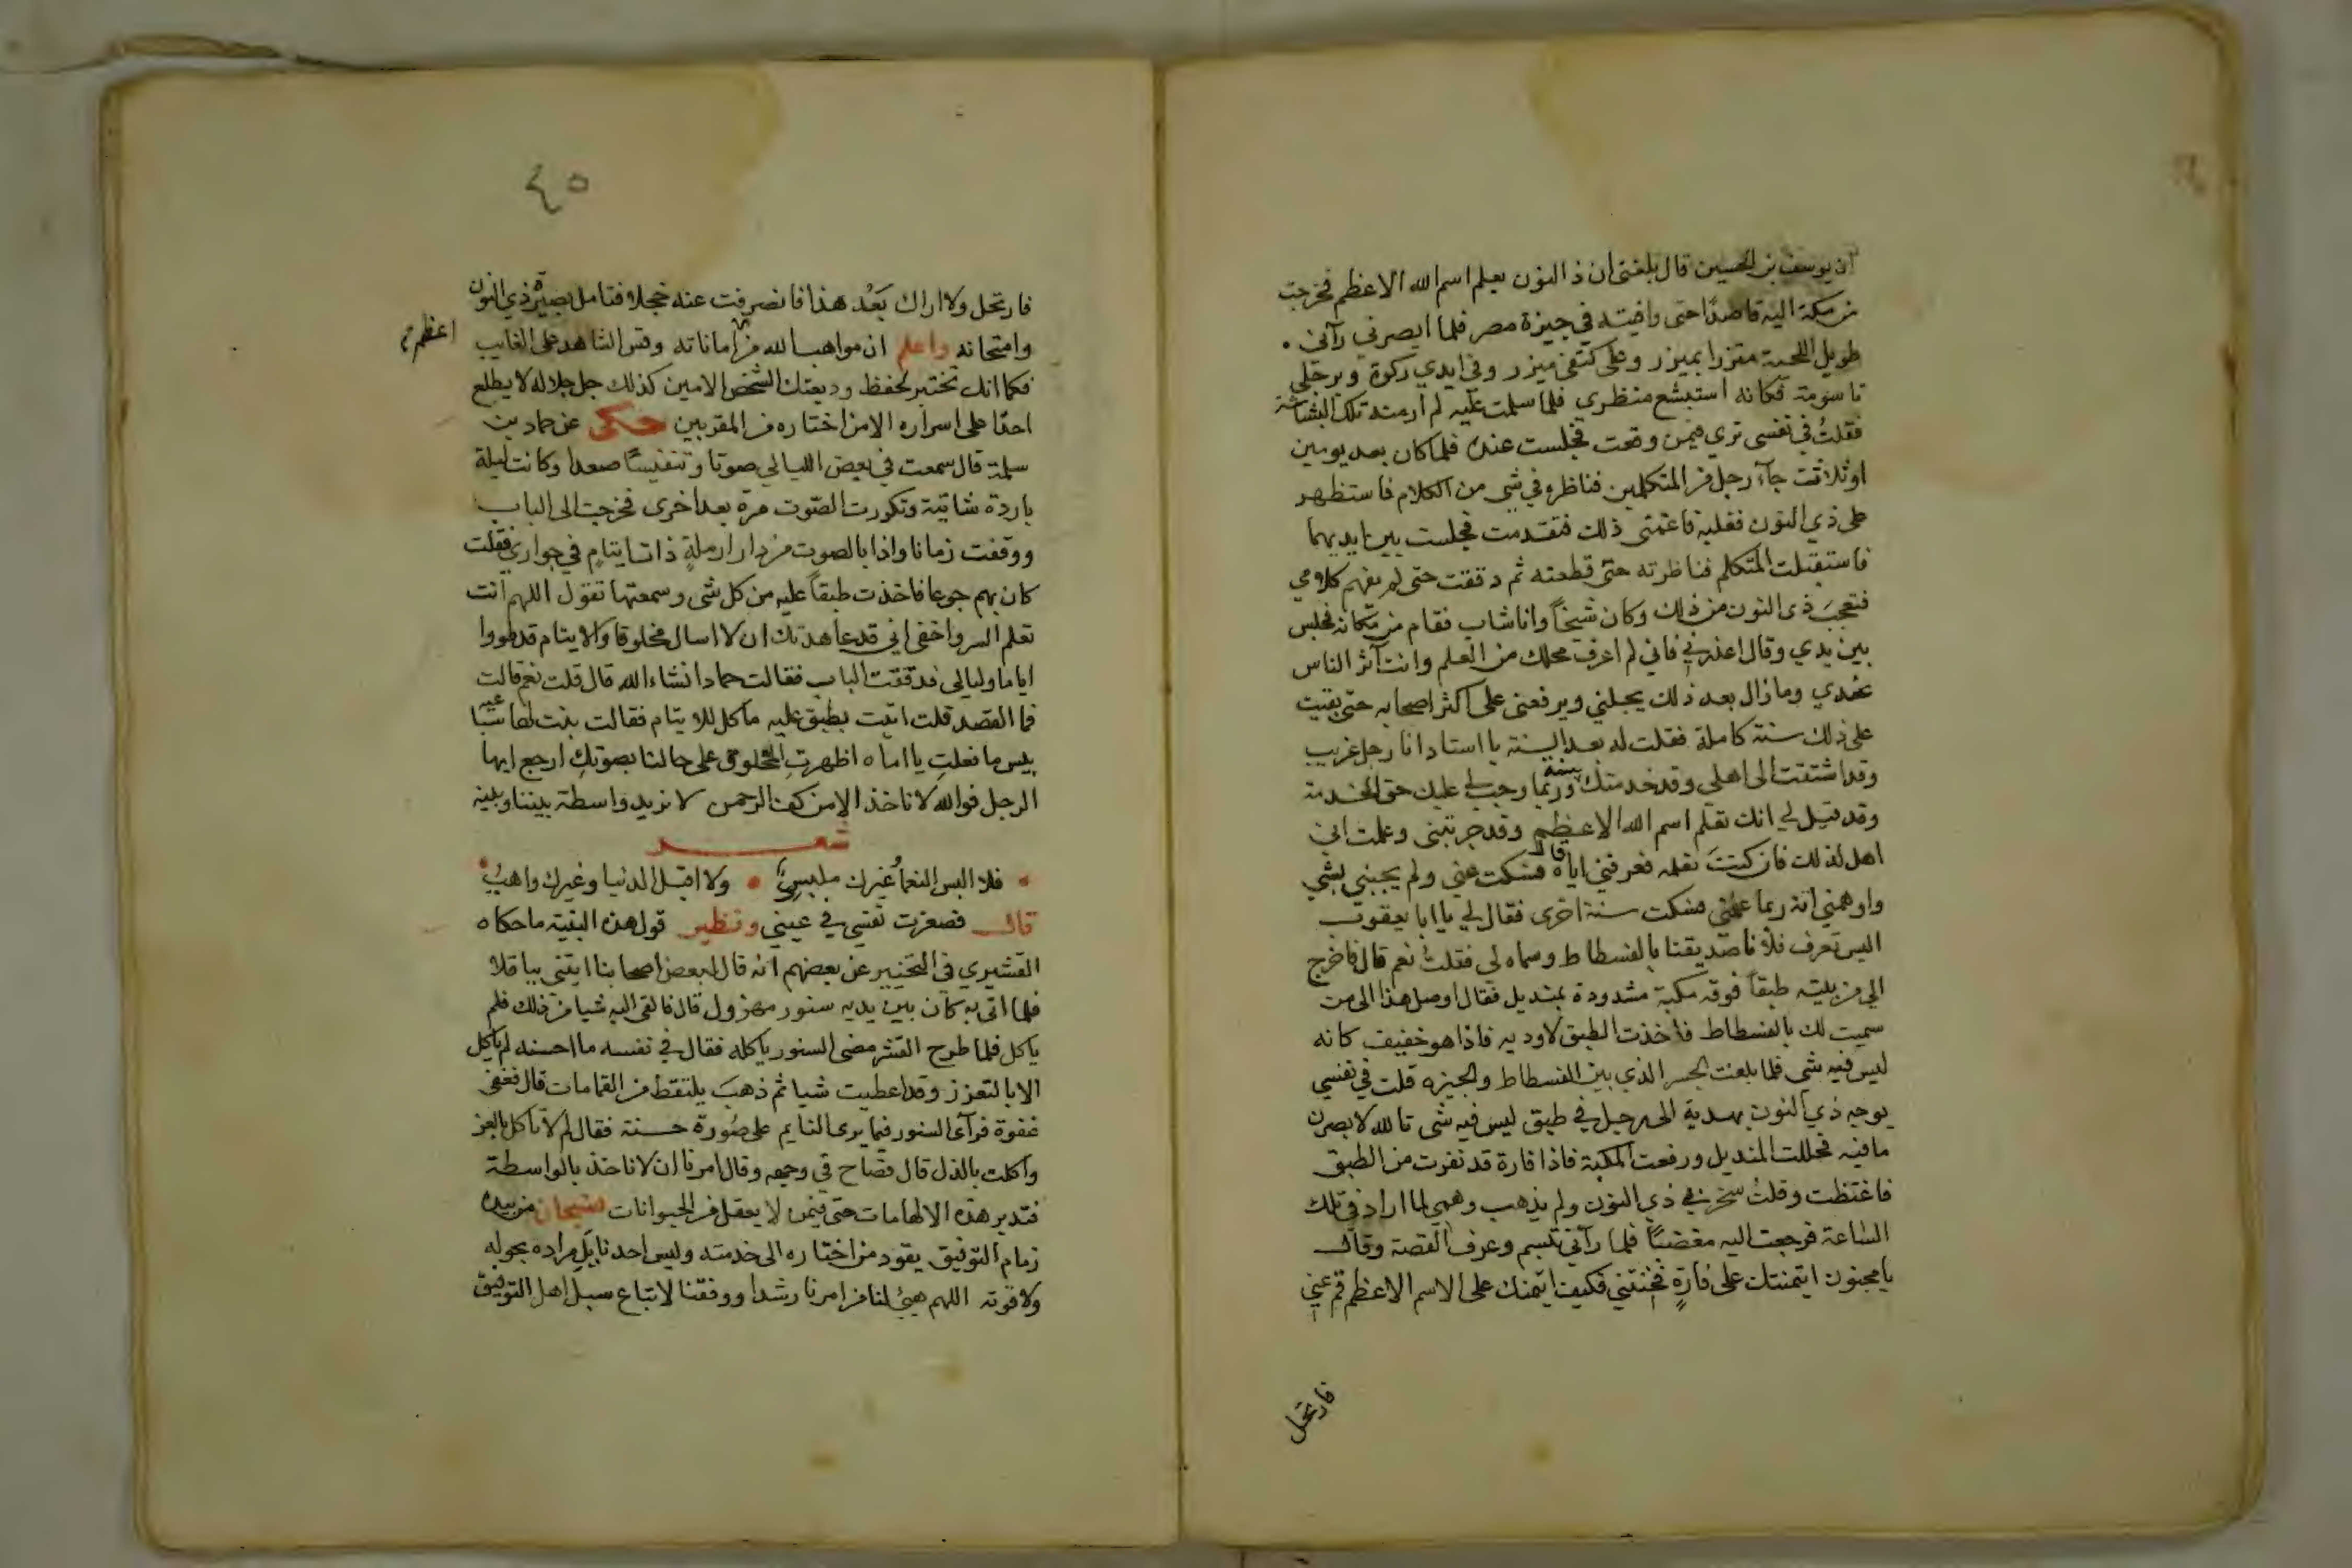 ان يوسف بن الحسين قال بلغني ان ذا النون يعلم اسم الله الاعظم فخرجت
من مكة اليه قاصدًا حتى وافيته في جيزة مصر فلما ابصرني رآني
طويل اللحية متزرا بميزر وعلى كتفي ميزر وفي ايدي ركوة وبرجلي
تاسومة فكانه استبشع منظري فلما سلمت عليه لم ار منه تلك البشاشة
فقلت في نفسي تري فيمن وقعت فجلست عنده فلما كان بعد يومين
او ثلاثة جآء رجل من المتكلمين فناظره في شي من الكلام فاستظهر
على ذي النون فغلبه فاغتمني ذلك فتقدمت فجلست بين ايديهما
فاستقبلت المتكلم فناظرته حتى قطعته ثم دققت حتى لم يفهم كلامي
فتعجبَ ذي النون من ذلك وكان شيخاً وانا شاب فقام من مكانه فجلس
بين يدي وقال اعذرني فاني لم اعرف محلك من العلم وانت آثر الناس
عندي وما زال بعد ذلك يجبلني ويرفعني على اكثر اصحابه حتى بقيت
على ذلك سنة كاملة فقلت له بعد السنة يا استاد انا رجل غريب
وقد اشتقت الى اهلي وقد خدمتك سنة وربما وجب لي عليك حق الخدمة
وقد قيل لي انك تعلم اسم الله الاعظم وقد جربتني وعلمت اني
اهل لذلك فان كنتَ تعلمه فعرفني اياه قال فسكت عني ولم يجبني بشي
واوهمني انه ربما علمني فسكت سنة اخرى فقال لي يا ابا يعقوب
اليس تعرف فلانا صديقنا بالفسطاط وسماه لي فقلت نعم قال فاخرج
الي من بيته طبقاً فوقه مكبة مشدودة بمنديل فقال اوصل هذا الى من
سميت لك بالفسطاط فاخذت الطبق لاوديه فاذا هو خفيف كانه
ليس فيه شي فلما بلغت الجسر الذي بين الفسطاط والجيزه قلت في نفسي
يوجه ذي النون بهدية الى رجل في طبق ليس فيه شي تالله لابصرن
ما فيه فحللت المنديل ورفعت المكبة فاذا فارة قد نفرت من الطبق
فاغتظت وقلت سخر بي ذي النون ولم يذهب وهمي لما اراد في تلك
الساعة فرجعت اليه مغضباً فلما رآني تبسم وعرف القصة وقال
يا مجنون ايتمنتك على فارةٍ فخنتني فكيف ايتمنك على الاسم الاعظم قم عني
فارتحل
٤٥
فارتحل ولا اراك بَعْد هذا فانصرفت عنه خجلا فتامل بصيرة ذي النون
وامتحانه واعلم ان مواهب الله من اماناته وقس الشاهد على الغايب
اعظم
فكما انك تختبر لحفظ وديعتك الشخص الامين كذلك جل جلاله لا يطلع
احدًا على اسراره الا من اختاره من المقربين حكى عن حماد بن
سلمة قال سمعت في بعض الليالي صوتا وتنفيسًا صعدا وكانت ليلة
باردة شاتية وتكررت الصوت مرة بعد اخرى فخرجت الى الباب
ووقفت زمانا واذا بالصوت من دار ارملةٍ ذات ايتام في جواري فقلت
كان بهم جوعا فاخذت طبقاً عليه من كل شي وسمعتها تقول اللهم انت
تعلم السر واخفى اني قد عاهدتك ان لا اسال مخلوقا والايتام قد طووا
اياما وليالى فدققت الباب فقالت حماد انشاء الله قال قلت نعم قالت
فما القصد قلت اتيت بطبق عليه ماكل للايتام فقالت بنت لها صبية
بيس ما فعلتِ يا اماه اظهرتِ المخلوق على حالنا بصوتكِ ارجع ايها
الرجل فوالله لا ناخذ الا من كف الرحمن لا نريد واسطة بيننا وبينه
شعر
فلا البس النعما وغيرك ملبسي ولا اقبل الدنيا وغيرك واهبُ
قال فصغرت نفسي في عيني ونظير قول هذه البنية ما حكاه
القشيري في التحبير عن بعضهم انه قال لبعض اصحابنا ايتني بباقلا
فلما اتى به كان بين يديه سنور مهزول قال فالقى اليه شيا من ذلك فلم
ياكل فلما طرح القشر مضى السنور ياكله فقال في نفسه ما احسنه لم ياكل
الا بالتعزز وقد اعطيت شيا ثم ذهبَ يلتقط من القمامات قال فغفى
غفوة فرآى السنور فيما يرى النايم على صُورة حسنة فقال لم لا تاكل بالعز
واكلت بالذل قال فصاح في وجهه وقال امرنا ان لا ناخذ بالواسطة
فتدبر هذه الالهامات حتى فيمن لا يعقل من الحيوانات سبحان من بيده
زمام التوفيق يقود من اختاره الى خدمته وليس احد نايل مراده بحوله
ولا قوته اللهم هيئ لنا من امرنا رشدا ووفقنا لاتباع سبل اهل التوفيق